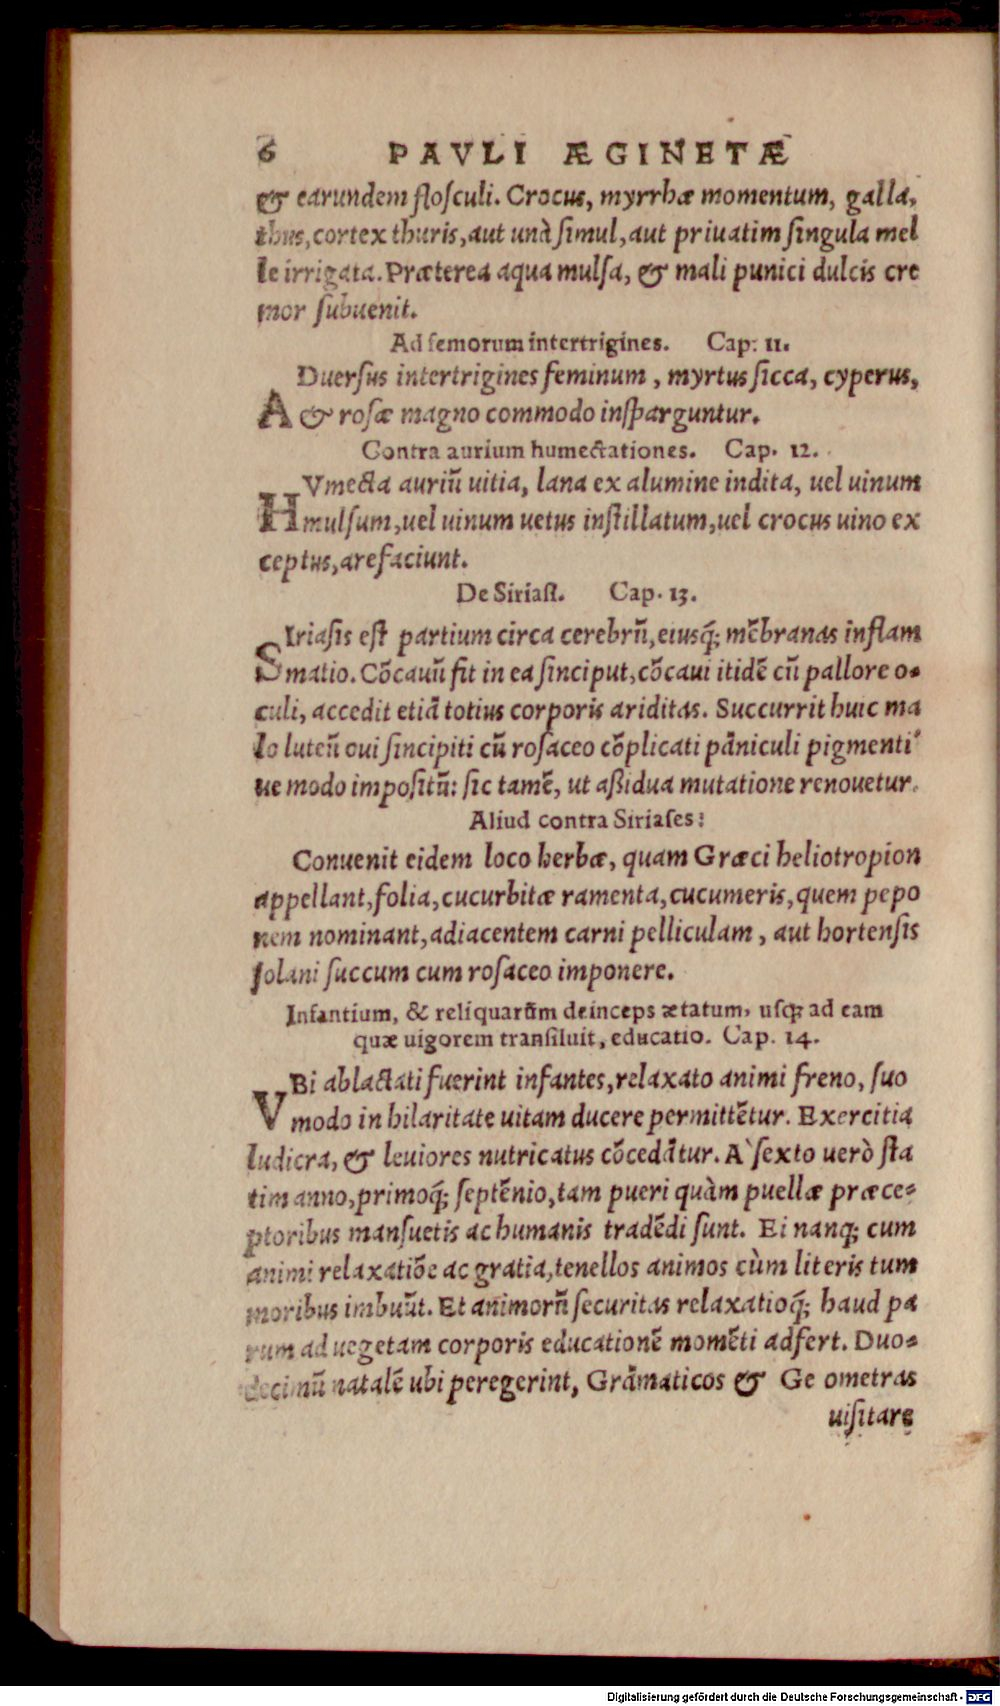 6 PAVLI ÆGINETÆ
& earundem flosculi. Crocus, myrrhæ momentum, galla,
thus, cortex thuris, aut unà simul, aut priuatim singula mel
le irrigata. Præterea aqua mulsa, & mali punici dulcis cre
mor subuenit.
Ad femorum intertrigines. Cap. 11.
ADuersus intertrigines feminum, myrtus sicca, cyperus,
& rosæ magno commodo insparguntur.
Contra aurium humectationes. Cap. 12.
HVmecta auriũ uitia, lana ex alumine indita, uel uinum
mulsum, uel uinum uetus instillatum, uel crocus uino ex
ceptus, arefaciunt.
De Siriasi. Cap. 13.
SIriasis est partium circa cerebrũ, eiusq; mẽbranas inflam
matio. Cõcauũ fit in ea sinciput, cõcaui itidẽ cũ pallore o-
culi, accedit etiã totius corporis ariditas. Succurrit huic ma
lo luteũ oui sincipiti cũ rosaceo cõplicati pãniculi pigmenti'
ue modo impositũ: sic tamẽ, ut aßidua mutatione renouetur.
Aliud contra Siriases:
Conuenit eidem loco herbæ, quam Græci heliotropion
appellant, folia, cucurbitæ ramenta, cucumeris, quem pepo
nem nominant, adiacentem carni pelliculam, aut hortensis
solani succum cum rosaceo imponere.
Infantium, & reliquarũm deinceps ætatum, usq; ad eam
quæ uigorem transiluit, educatio. Cap. 14.
VBi ablactati fuerint infantes, relaxato animi freno, suo
modo in hilaritate uitam ducere permittẽtur. Exercitia
ludicra, & leuiores nutricatus cõcedãtur. A`sexto uerò sta
tim anno, primoq; septẽnio, tam pueri quàm puellæ præce-
ptoribus mansuetis ac humanis tradẽdi sunt. Ei nanq; cum
animi relaxatiõe ac gratia, tenellos animos cùm literis tum
moribus imbuũt. Et animorũ securitas relaxatioq; haud pa
rum ad uegetam corporis educationẽ momẽti adfert. Duo-
decimũ natalẽ ubi peregerint, Grãmaticos & Ge ometras
uisitare
Digitalisierung gefördert durch die Deutsche Forschungsgemeinschaft - DFG